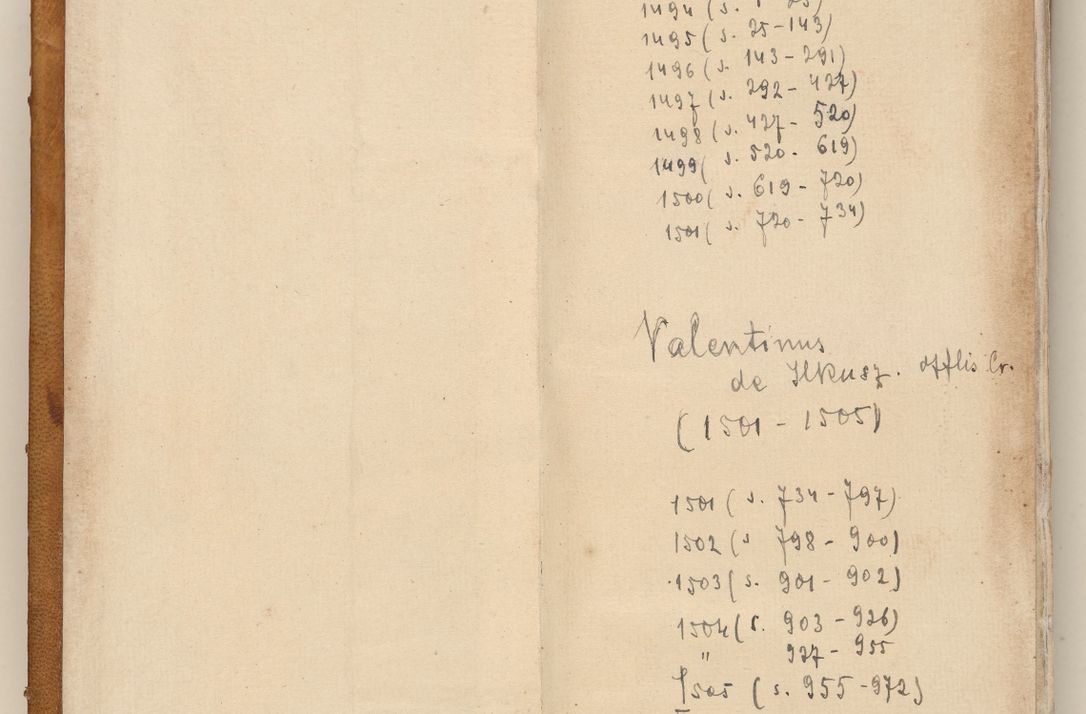 1494 (s. 1-25)
1495 (s. 25-143)
1496 (s. 143-291)
1497 (s. 292-427)
1498 (s. 427-520)
1499 (s. 520-619)
1500 (s. 619-720)
1501 (s. 720-734)
Valentinus
de Ilkusz. offlis Cr.
(1501-1505)
1501 (s. 734-797)
1502 (s 798-900)
1503 (s. 901-902)
1504 (s. 903-926)
" 927-955
1505 (s. 955-972)